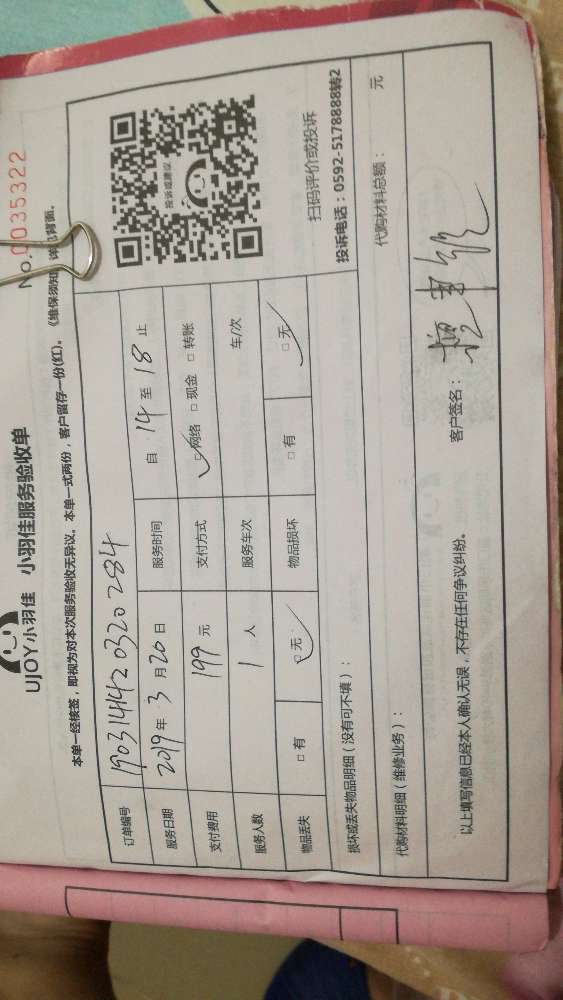 No.0035322
UJOY小羽佳 小羽佳服务验收单
本单一经核签，即视为对本次服务验收无异议。本单一式两份，客户留存一份(红)。《维保须知》详见背面。
订单编号 190314420320284
投诉或建议
服务日期 2019年 3 月 20 日 服务时间 自 14 至 18 止
支付费用 199 元 支付方式 □网络 □现金 □转账
服务人数 1 人 服务车次 车/次
物品丢失 □有 □无 物品损坏 □有 □无
扫码评价或投诉
投诉电话：0592-5178888转2
损坏或丢失物品明细（没有可不填）：
代购材料明细（维修业务）： 代购材料总额： 元
以上填写信息已经本人确认无误，不存在任何争议纠纷。 客户签名：